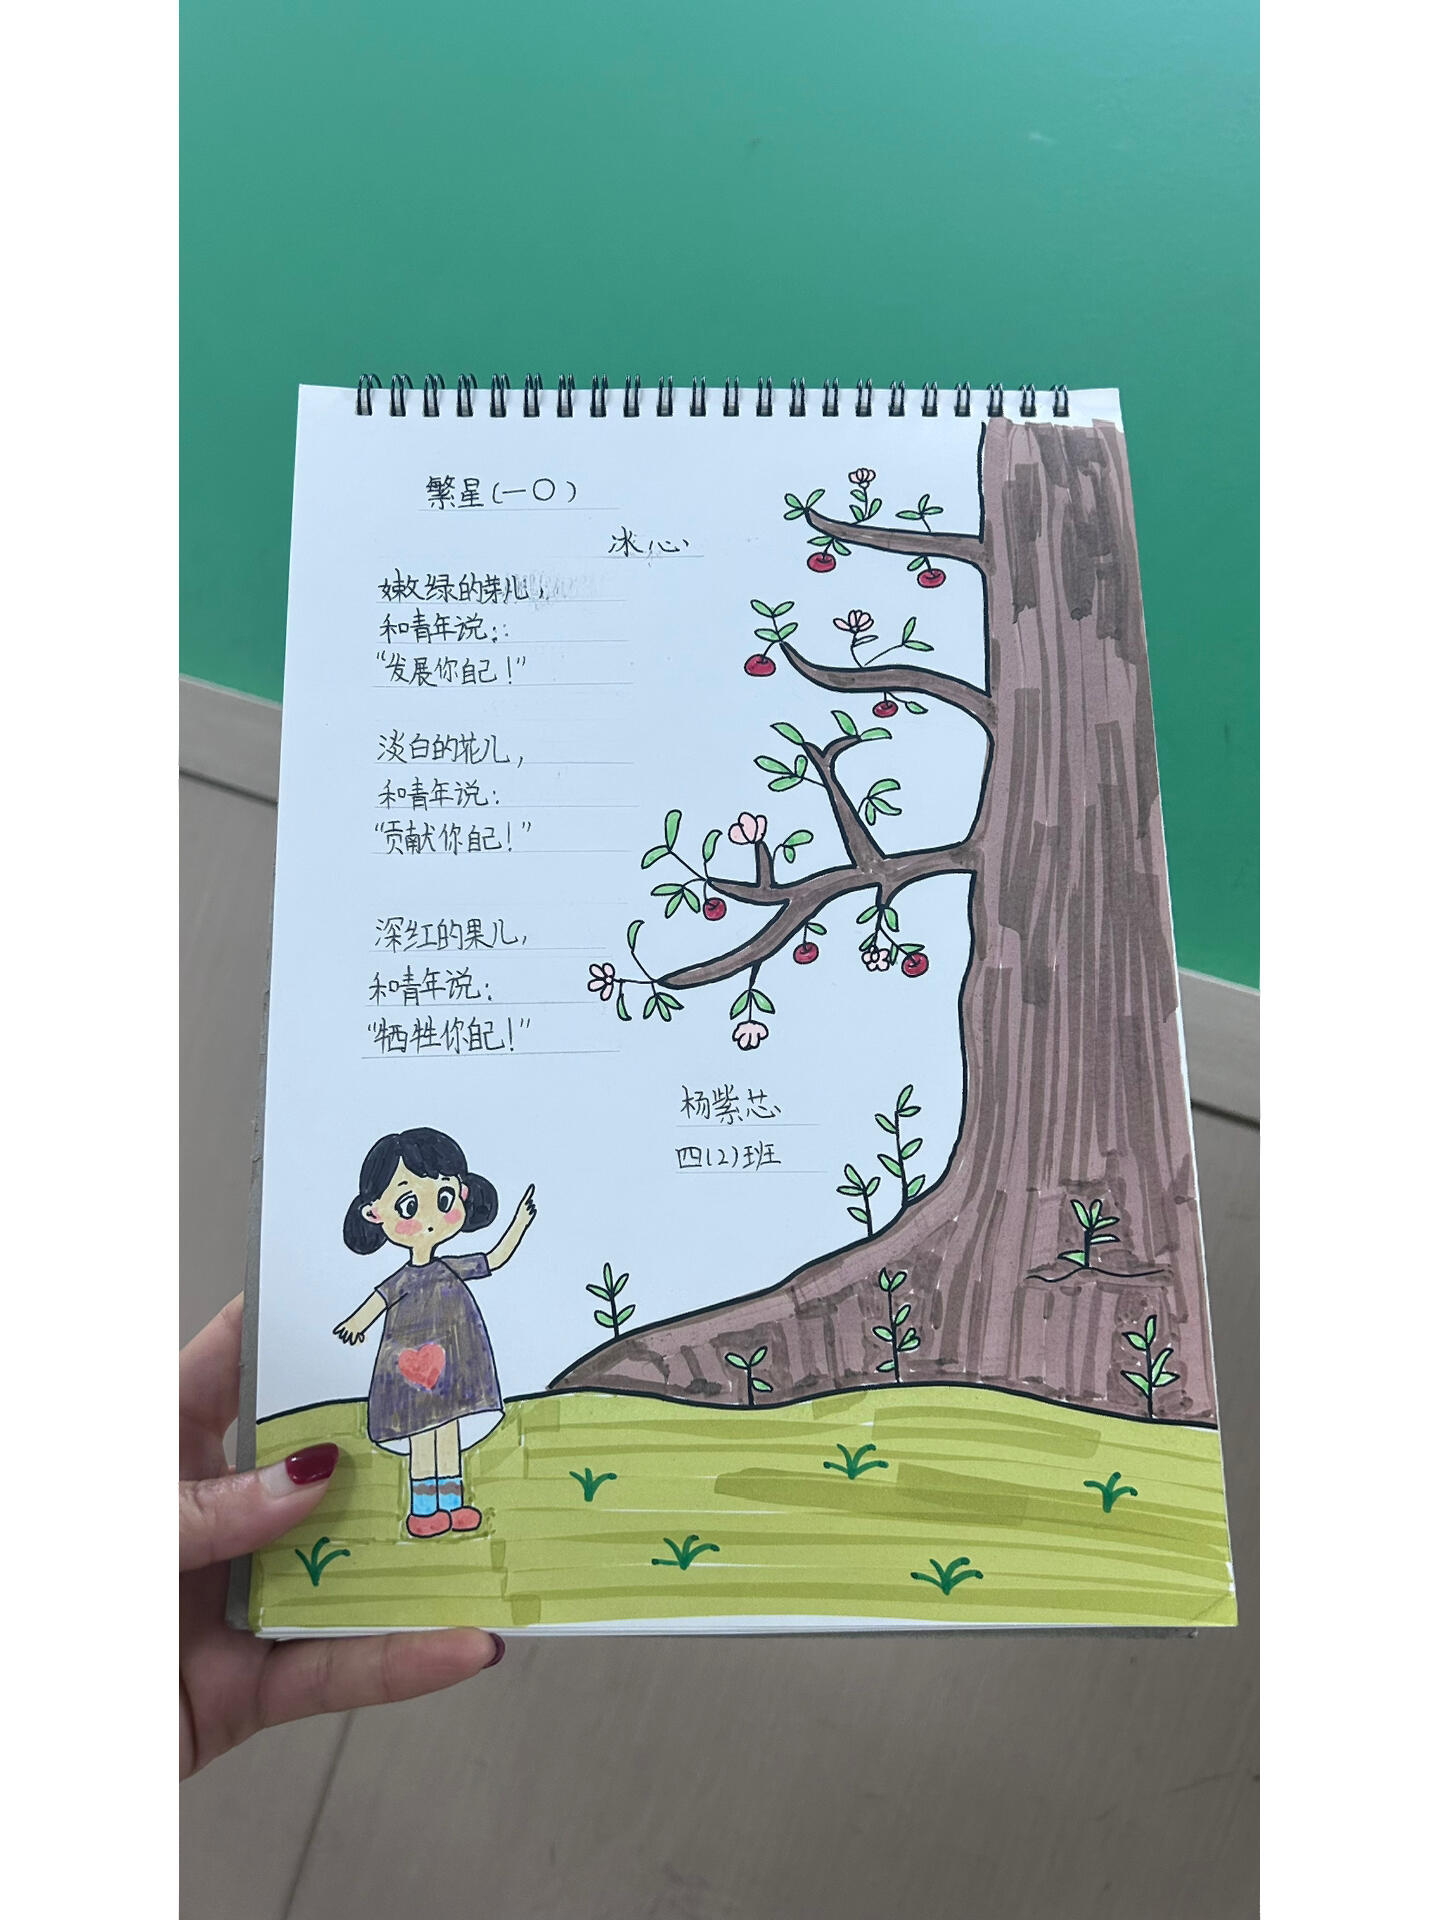 繁星(一〇)
冰心
嫩绿的芽儿,
和青年说::
“发展你自己!”
淡白的花儿,
和青年说:
“贡献你自己!”
深红的果儿,
和青年说:
“牺牲你自己!”
杨紫芯
四(2)班